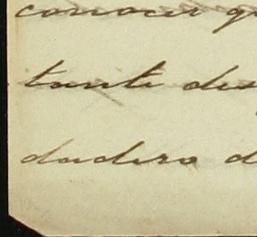 conocer q
tante des
dadero d